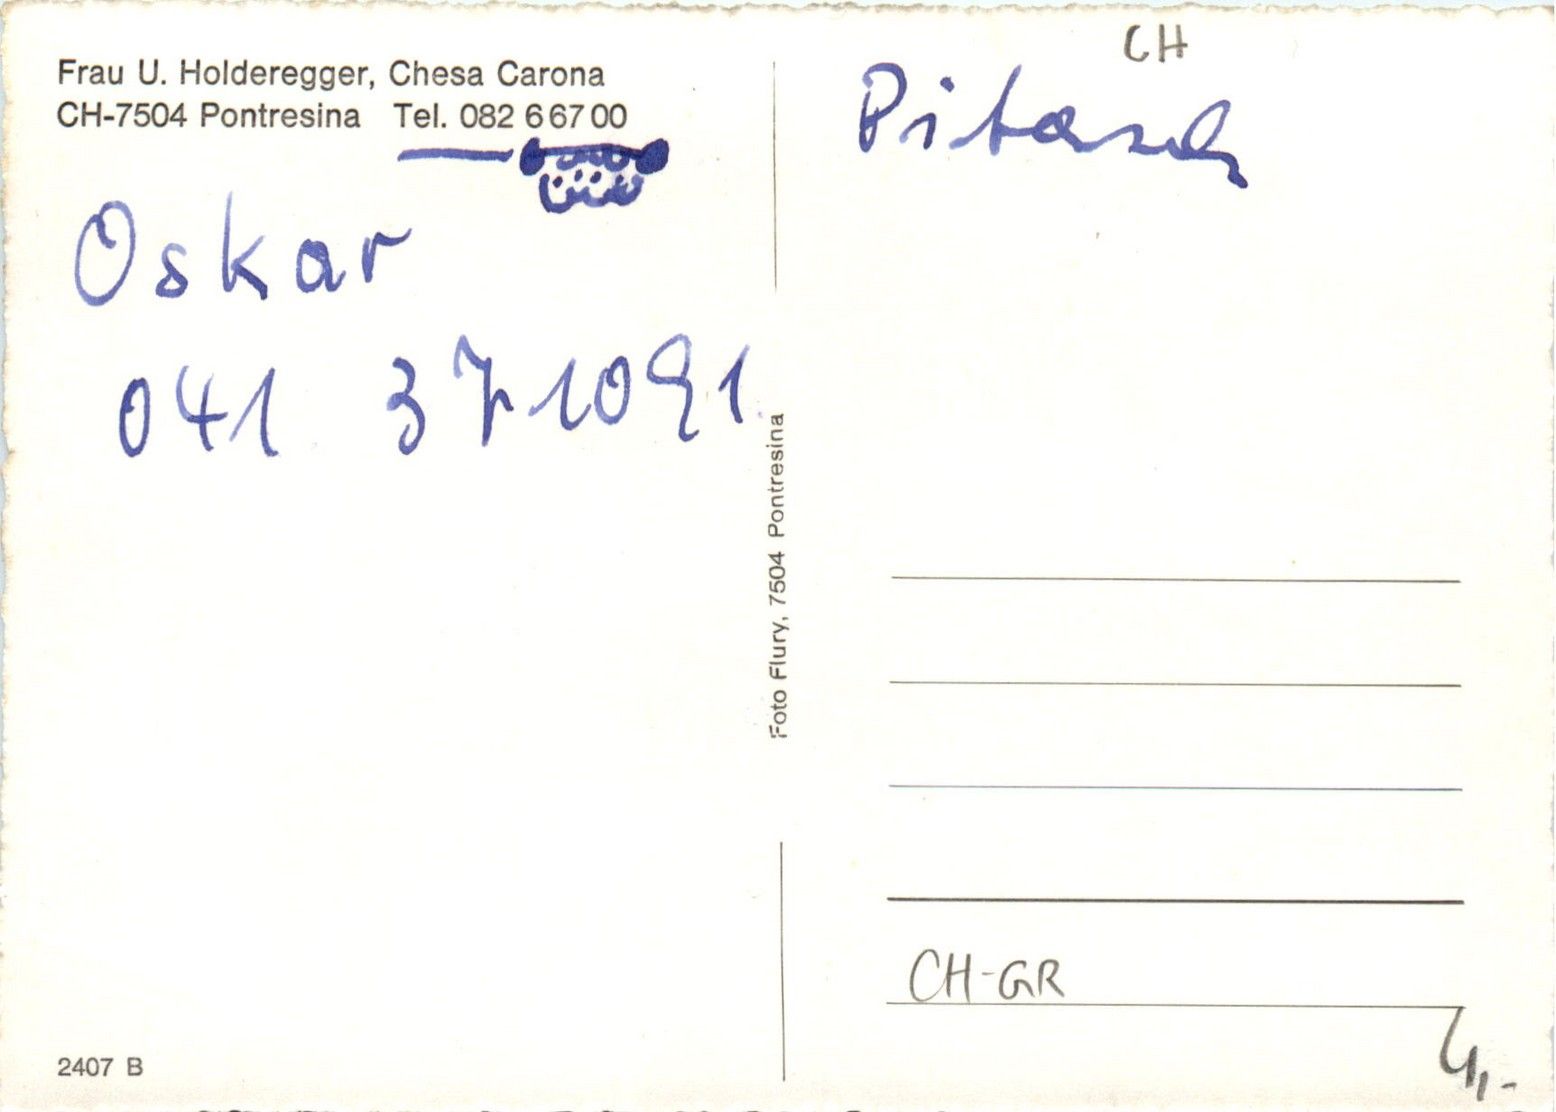 Frau U. Holderegger, Chesa Carona
CH-7504 Pontresina Tel. 082 6 67 00
Oskar
041 371091
Foto Flury, 7504 Pontresina
2407 B
CH
Pitasch
CH-GR
4,-